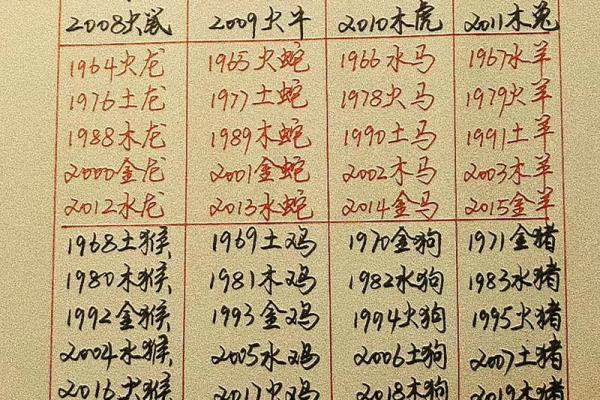 2008火鼠 2009火牛 2010木虎 2011木兔
1964火龙 1965火蛇 1966水马 1967水羊
1976土龙 1977土蛇 1978火马 1979火羊
1988木龙 1989木蛇 1990土马 1991土羊
2000金龙 2001金蛇 2002木马 2003木羊
2012水龙 2013水蛇 2014金马 2015金羊
1968土猴 1969土鸡 1970金狗 1971金猪
1980木猴 1981木鸡 1982水狗 1983水猪
1992金猴 1993金鸡 1994火狗 1995火猪
2004水猴 2005水鸡 2006土狗 2007土猪
2016火猴 2017火鸡 2018木狗 2019木猪